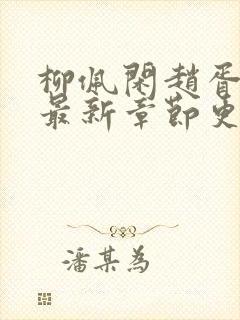 柳佩閑趙胥
最新章節史
潘某為